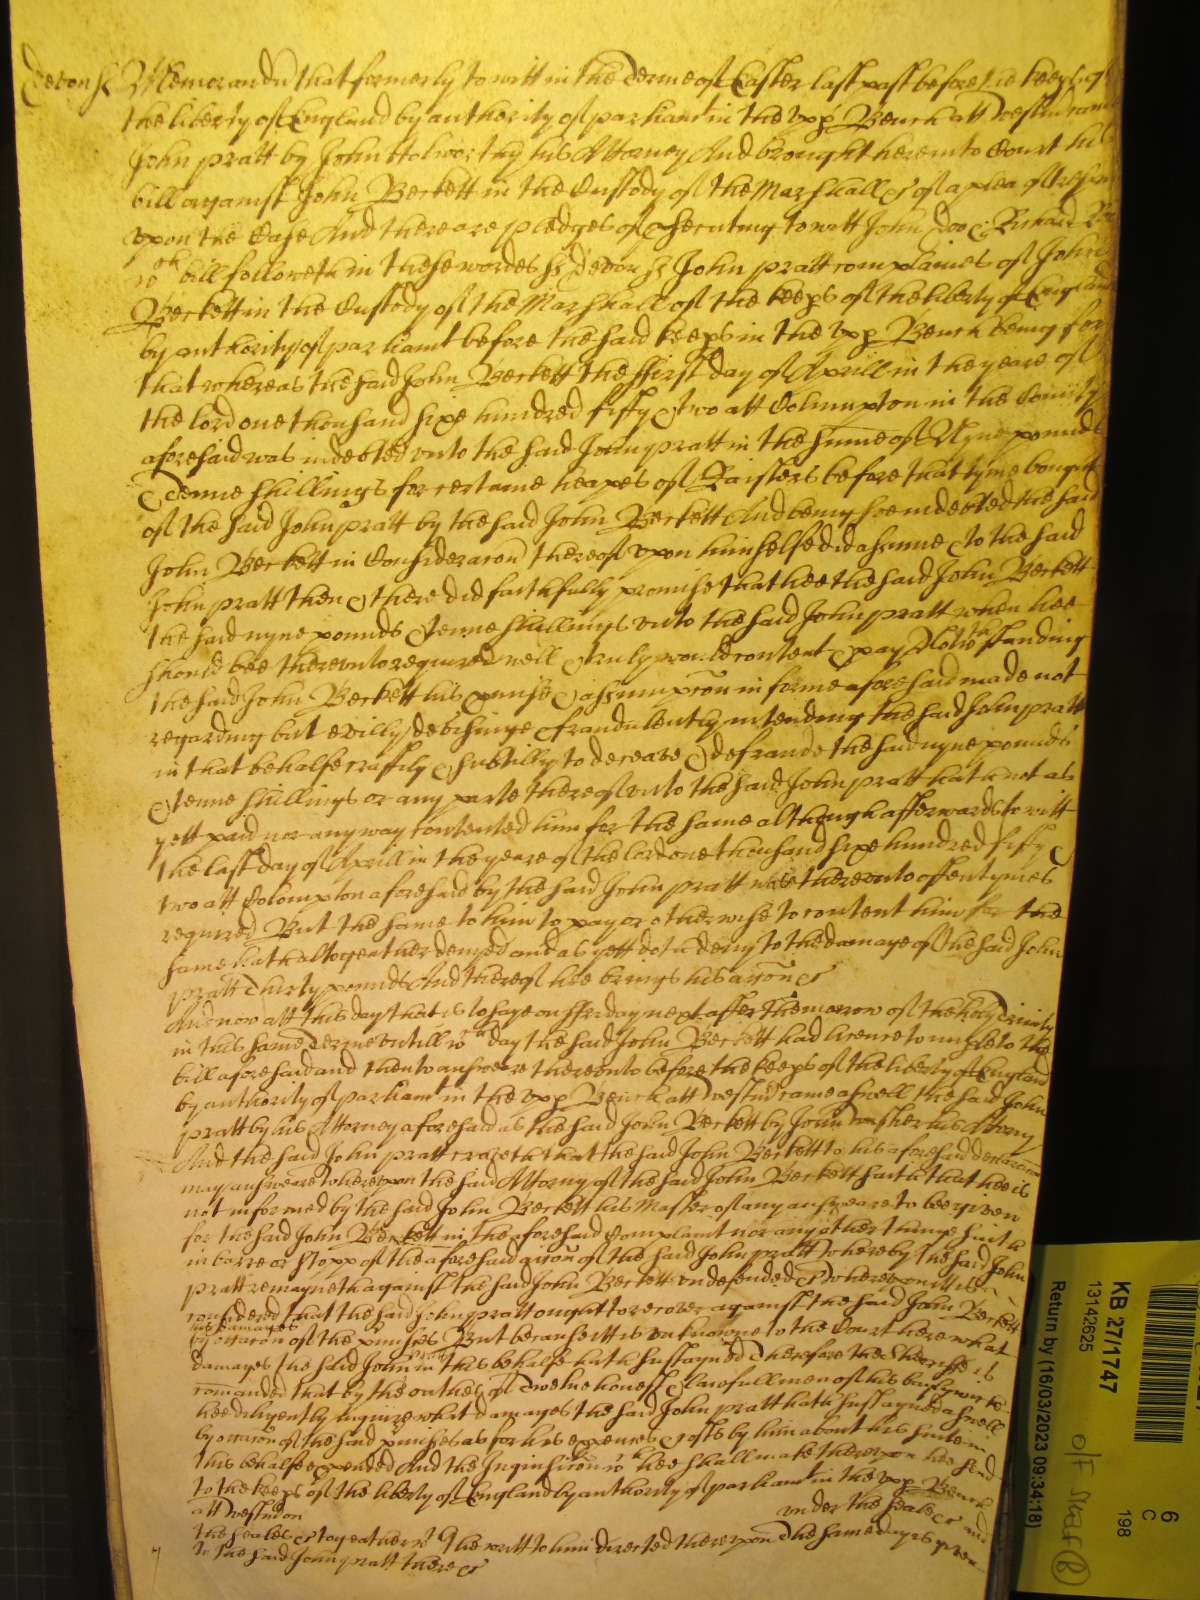 Devon ss Memorandu that formerly to witt in the Terme of Easter last past before the keeps of
the liberty of England by authority of parliamt in the upp Bench att Westm came
John Pratt by John Holworthy his Attorney And brought here into Court his
bill against John Beckett in the Custody of the Marshall &c of a plea of trespas
upon the Case And there are pledges of prsecuting to witt John Doo & Richard Roo
wch bill followeth in these wordes ss Devon ss John Pratt complaines of John
Beckett in the Custody of the Marshall of the keeps of the liberty of England
by authority of parliamt before the said keeps in the upp Bench being for
that whereas the said John Beckett the ffirst day of Aprill in the yeare of
the lord one thousand sixe hundred fifty & two att Columpton in the County
aforesaid was indebted unto the said John Pratt in the sume of Nyne pounds
& tenne shillings for certaine heapes of before that tyme bought
of the said John Pratt by the said John Beckett And being soe indebted the said
John Beckett in Consideracon thereof upon himselfe did assume & to the said
John Pratt then & there did faithfully promise that hee the said John Beckett
the said nyne pounds & tenne shillings unto the said John Pratt when hee
should bee thereunto required well & truly would content & pay Notwthstanding
the said John Beckett his pmise & assumpcon in forme aforesaid made not
regarding but evilly devisinge & fraudulently intending the said John Pratt
in that behalfe craftily & subtilly to deceave & defraude the said nyne pounds
& tenne shillings or any parte thereof unto the said John Pratt hath not as
yett paid nor any way contented him for the same although afterwards to witt
the last day of Aprill in the yeare of the lord one thousand sixe hundred fifty &
two att Colompton aforesaid by the said John Pratt hee thereunto often tymes
required But the same to him to pay or otherwise to content him for the
same hath altogeather denyed and as yett doth deny to the damage of the said John
Pratt Thirty pounds And thereof hee brings his accon &c
And now att this day that is to say on ffriday next after the morrow of the holy Trinity
in this same Terme untill wch day the said John Beckett had licence to imple to the
bill aforesaid and then to answere thereunto before the keeps of the liberty of England
by authority of parliamt in the upp Bench att Westm came aswell the said John
Pratt by his Attorney aforesaid as the said John Beckett by John his Attorny
And the said John Pratt prayeth that the said John Beckett to his aforesaid declaracon
may answeare whereupon the said Attorny of the said John Beckett saith that hee is
not informed by the said John Beckett his Master of any answeare to bee given
for the said John Beckett in the aforesaid Complaint nor any other thinge saith
in barre or stopp of the aforesaid accon of the said John Pratt Whereby the said John
Pratt remayneth against the said John Beckett undefended &c Whereupon itt is
considered that the said John Pratt ought to recover against the said John Beckett
his damages
by occacon of the pmisses But because itt is unknowne to the Court here what
damages the said John Pratt in this behalfe hath sustayned Therefore the Sherriffe is
comanded that by the oathes of Twelve honest & lawfull men of his baylywicke
hee diligently inquire what damages the said John Pratt hath sustayned aswell
by occacon of the said pmisses as for his expences & costs by him about his suite in
this behalfe expended And the Inquisicon wch hee shall make thereupon hee send
to the keeps of the liberty of England by authority of parliamt in the upp Bench
att Westm on under the seale &c and
the seales &c togeather wth the writt to him directed thereupon The same day is given
to the said John Pratt there &c
KB 27/1747
13142625
Return by (16/03/2023 09:34:18)
6
C
198